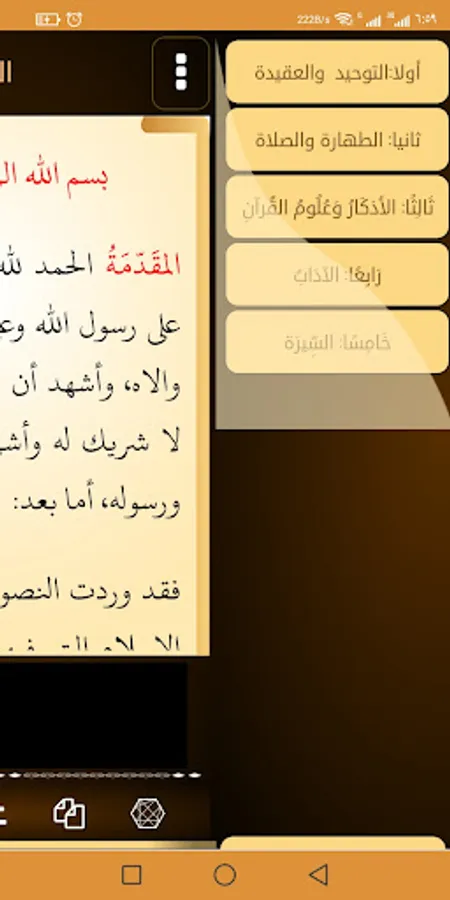 222B/s ٦:٥٩
أولا:التوحيد والعقيدة
ثانيا: الطهارة والصلاة
ثَالِثًا: الأَذكَارُ وَعُلُومُ القُرآنِ
رَابِعًا: الآدَابُ
خَامِسًا: السِّيرَة
بسم الله
المقَدّمَةُ الحمد لله
على رسول الله
والاه، وأشهد أن
لا شريك له
ورسوله، أما بعد:
فقد وردت